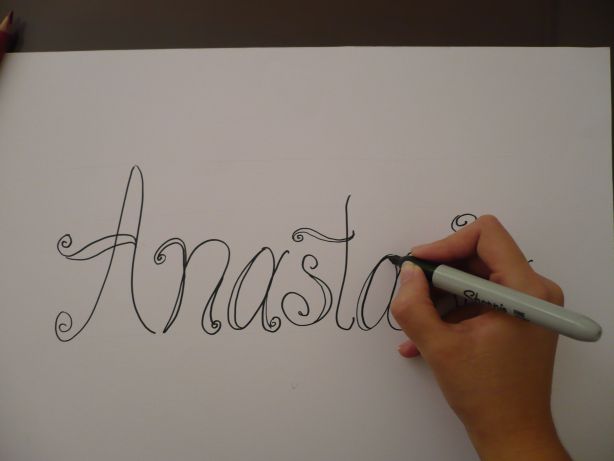 Anasta
Sharpie